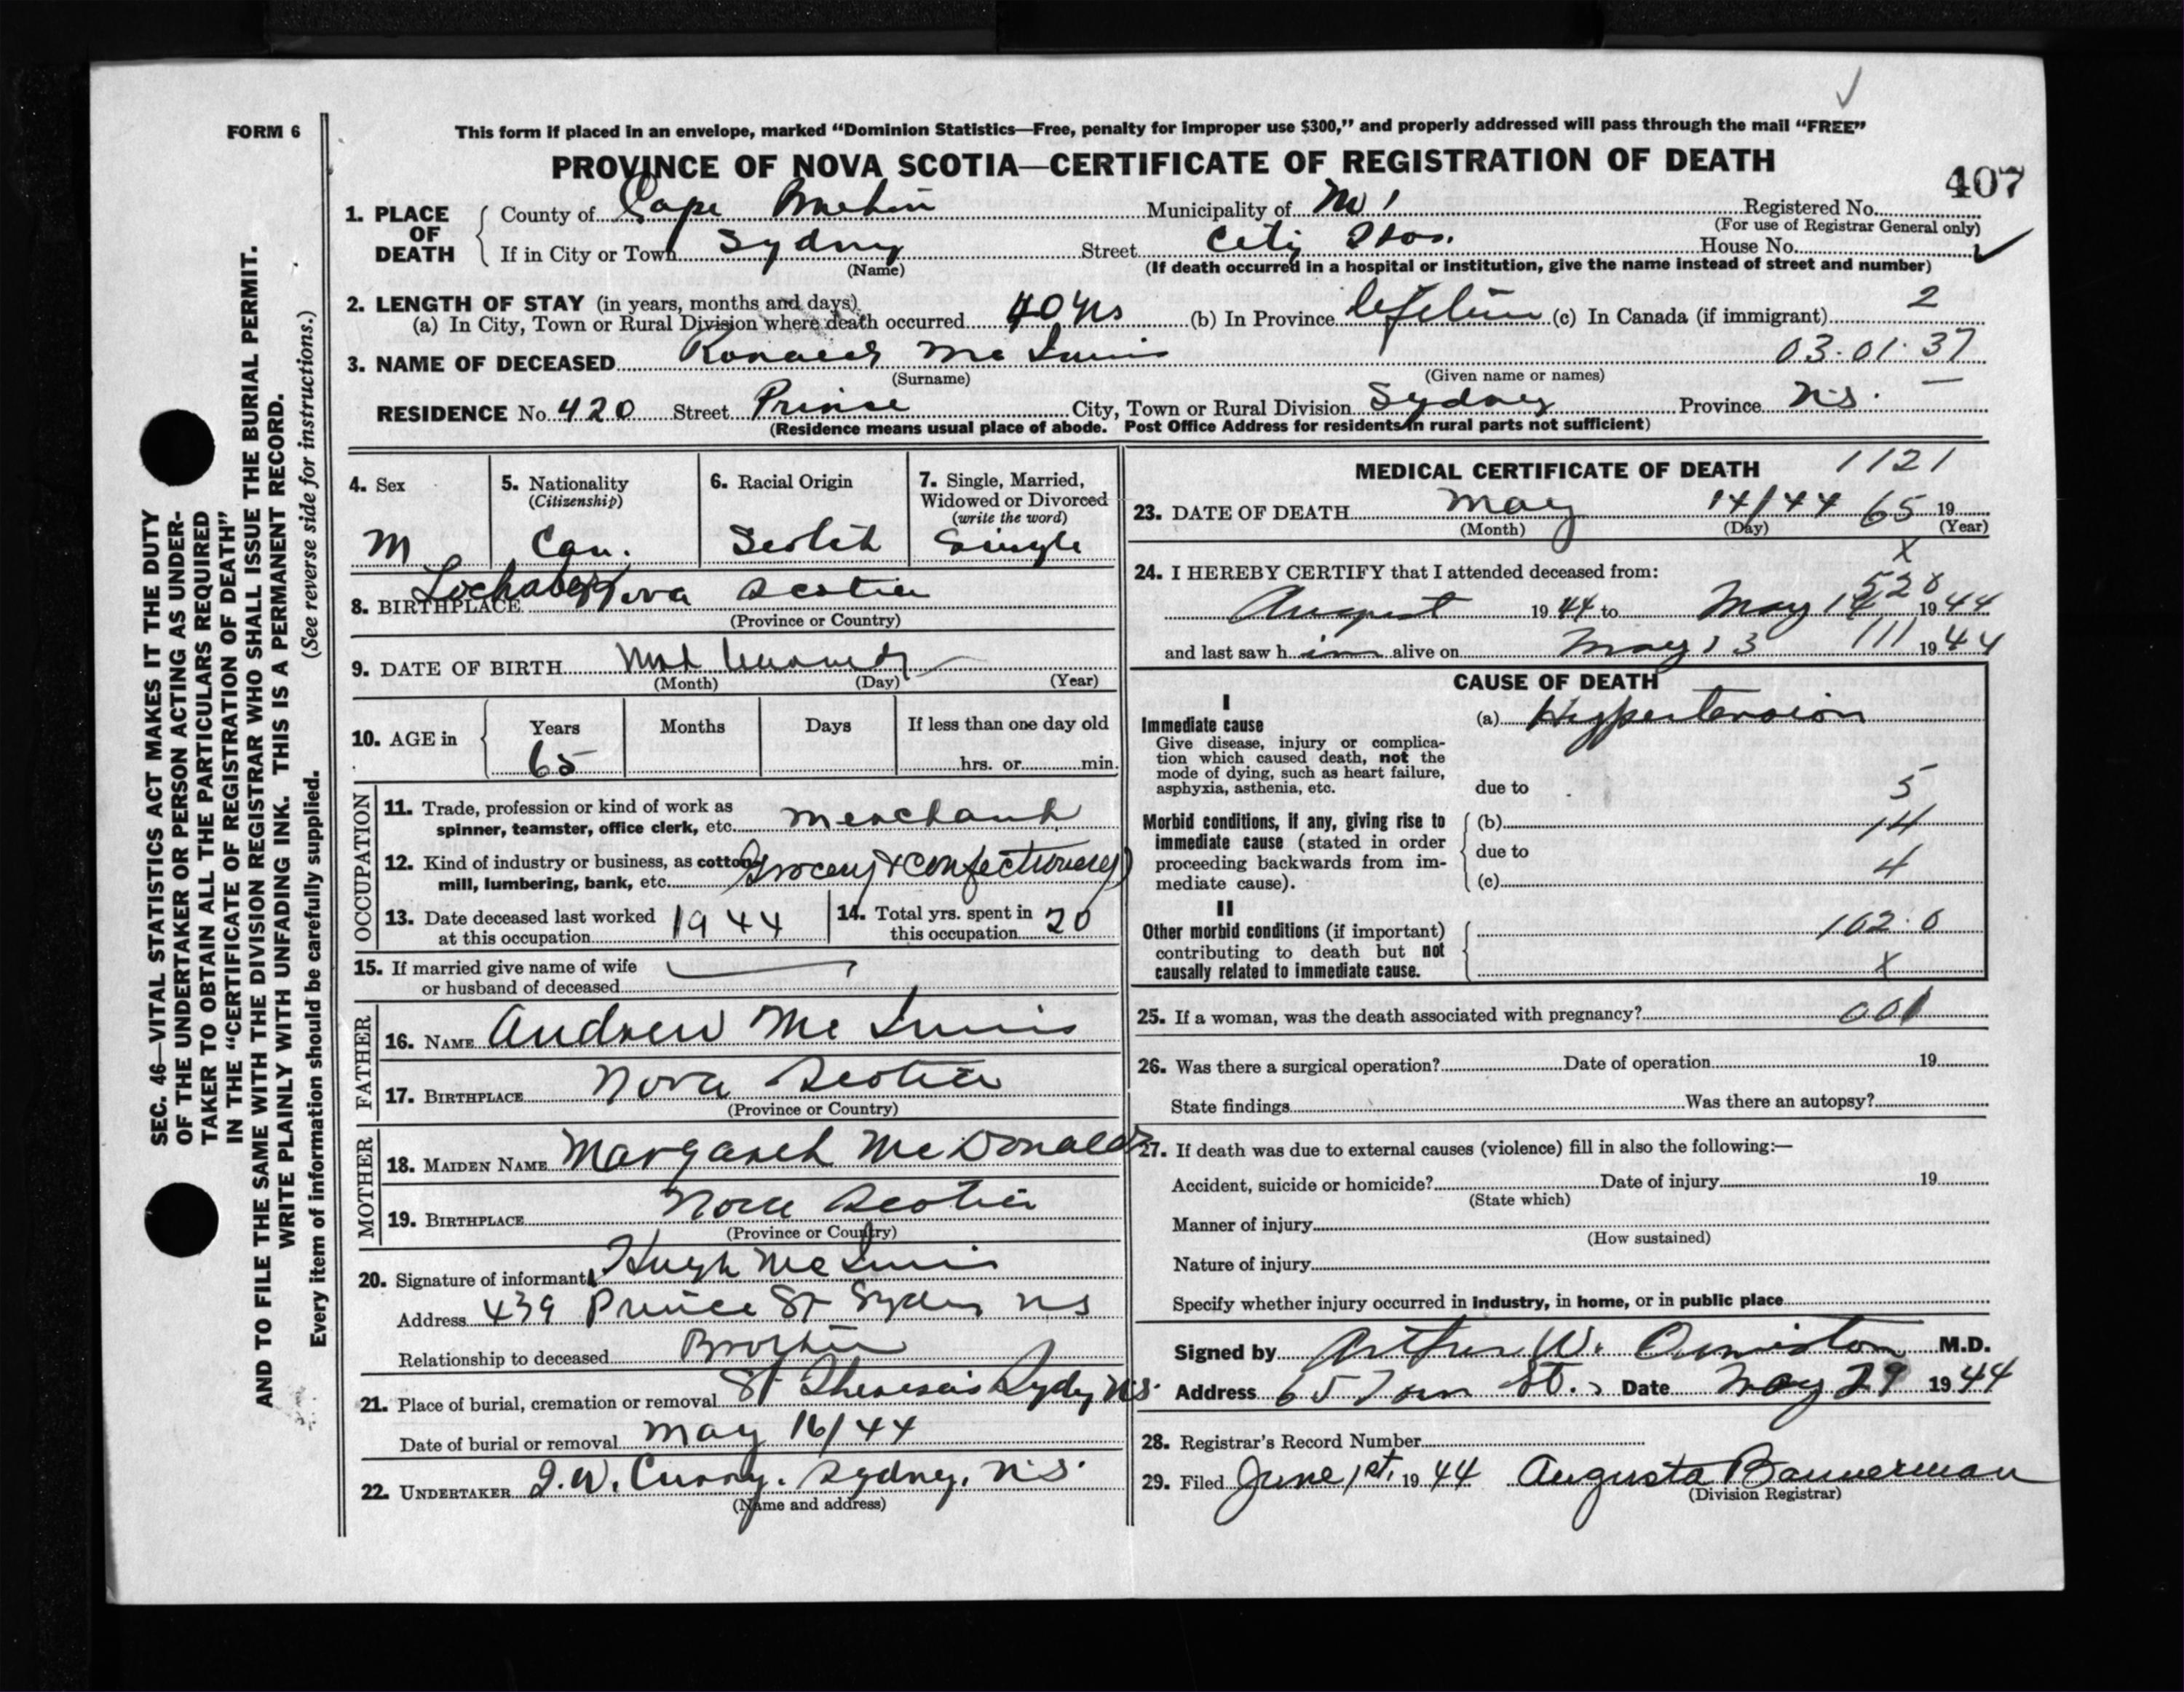 FORM 6
This form if placed in an envelope, marked “Dominion Statistics—Free, penalty for improper use $300,” and properly addressed will pass through the mail “FREE”
PROVINCE OF NOVA SCOTIA—CERTIFICATE OF REGISTRATION OF DEATH
407
SEC. 46—VITAL STATISTICS ACT MAKES IT THE DUTY
OF THE UNDERTAKER OR PERSON ACTING AS UNDER-
TAKER TO OBTAIN ALL THE PARTICULARS REQUIRED
IN THE “CERTIFICATE OF REGISTRATION OF DEATH”
AND TO FILE THE SAME WITH THE DIVISION REGISTRAR WHO SHALL ISSUE THE BURIAL PERMIT.
WRITE PLAINLY WITH UNFADING INK. THIS IS A PERMANENT RECORD.
Every item of information should be carefully supplied. (See reverse side for instructions.)
1. PLACE OF DEATH
County of Cape Breton Municipality of Registered No.
(For use of Registrar General only)
If in City or Town Sydney Street City Hos. House No.
(Name) (If death occurred in a hospital or institution, give the name instead of street and number)
2. LENGTH OF STAY (in years, months and days)
(a) In City, Town or Rural Division where death occurred 40 yrs (b) In Province lifetime (c) In Canada (if immigrant) 2
3. NAME OF DECEASED Ronald Mc Innis 03.01.37
(Surname) (Given name or names)
RESIDENCE No. 420 Street Prince City, Town or Rural Division Sydney Province N.S.
(Residence means usual place of abode. Post Office Address for residents in rural parts not sufficient)
4. Sex M
5. Nationality (Citizenship) Can.
6. Racial Origin Scotch
7. Single, Married, Widowed or Divorced (write the word) Single
8. BIRTHPLACE Lochaber Nova Scotia
(Province or Country)
9. DATE OF BIRTH
(Month) (Day) (Year)
10. AGE in Years 65 Months Days If less than one day old
hrs. or min.
OCCUPATION
11. Trade, profession or kind of work as
spinner, teamster, office clerk, etc. Merchant
12. Kind of industry or business, as cotton
mill, lumbering, bank, etc. Grocery & Confectionery
13. Date deceased last worked
at this occupation 1944
14. Total yrs. spent in
this occupation 20
15. If married give name of wife
or husband of deceased
FATHER
16. NAME Andrew Mc Innis
17. BIRTHPLACE Nova Scotia
(Province or Country)
MOTHER
18. MAIDEN NAME Margaret McDonald
19. BIRTHPLACE Nova Scotia
(Province or Country)
20. Signature of informant Hugh McInnis
Address 439 Prince St Sydney NS
Relationship to deceased Brother
21. Place of burial, cremation or removal St Theresa's Sydney N.S.
Date of burial or removal May 16/44
22. UNDERTAKER Curry. Sydney, N.S.
(Name and address)
MEDICAL CERTIFICATE OF DEATH 1121
23. DATE OF DEATH May 14/44 65 19
(Month) (Day) (Year)
x
24. I HEREBY CERTIFY that I attended deceased from:
528
August 1944 to May 14 1944
and last saw h im alive on May 13 111 1944
CAUSE OF DEATH
I
Immediate cause
Give disease, injury or complica-
tion which caused death, not the
mode of dying, such as heart failure,
asphyxia, asthenia, etc.
(a) Hypertension
due to 5
Morbid conditions, if any, giving rise to
immediate cause (stated in order
proceeding backwards from im-
mediate cause).
(b) 14
due to
(c) 4
II
Other morbid conditions (if important)
contributing to death but not
causally related to immediate cause.
102.0
x
25. If a woman, was the death associated with pregnancy? 001
26. Was there a surgical operation? Date of operation 19
State findings Was there an autopsy?
27. If death was due to external causes (violence) fill in also the following:—
Accident, suicide or homicide? Date of injury 19
(State which)
Manner of injury
(How sustained)
Nature of injury
Specify whether injury occurred in industry, in home, or in public place
Signed by Arthur W. Ormiston M.D.
Address 65 Town St. Date May 29 1944
28. Registrar's Record Number
29. Filed June 1st, 1944 Augusta Bannerman
(Division Registrar)